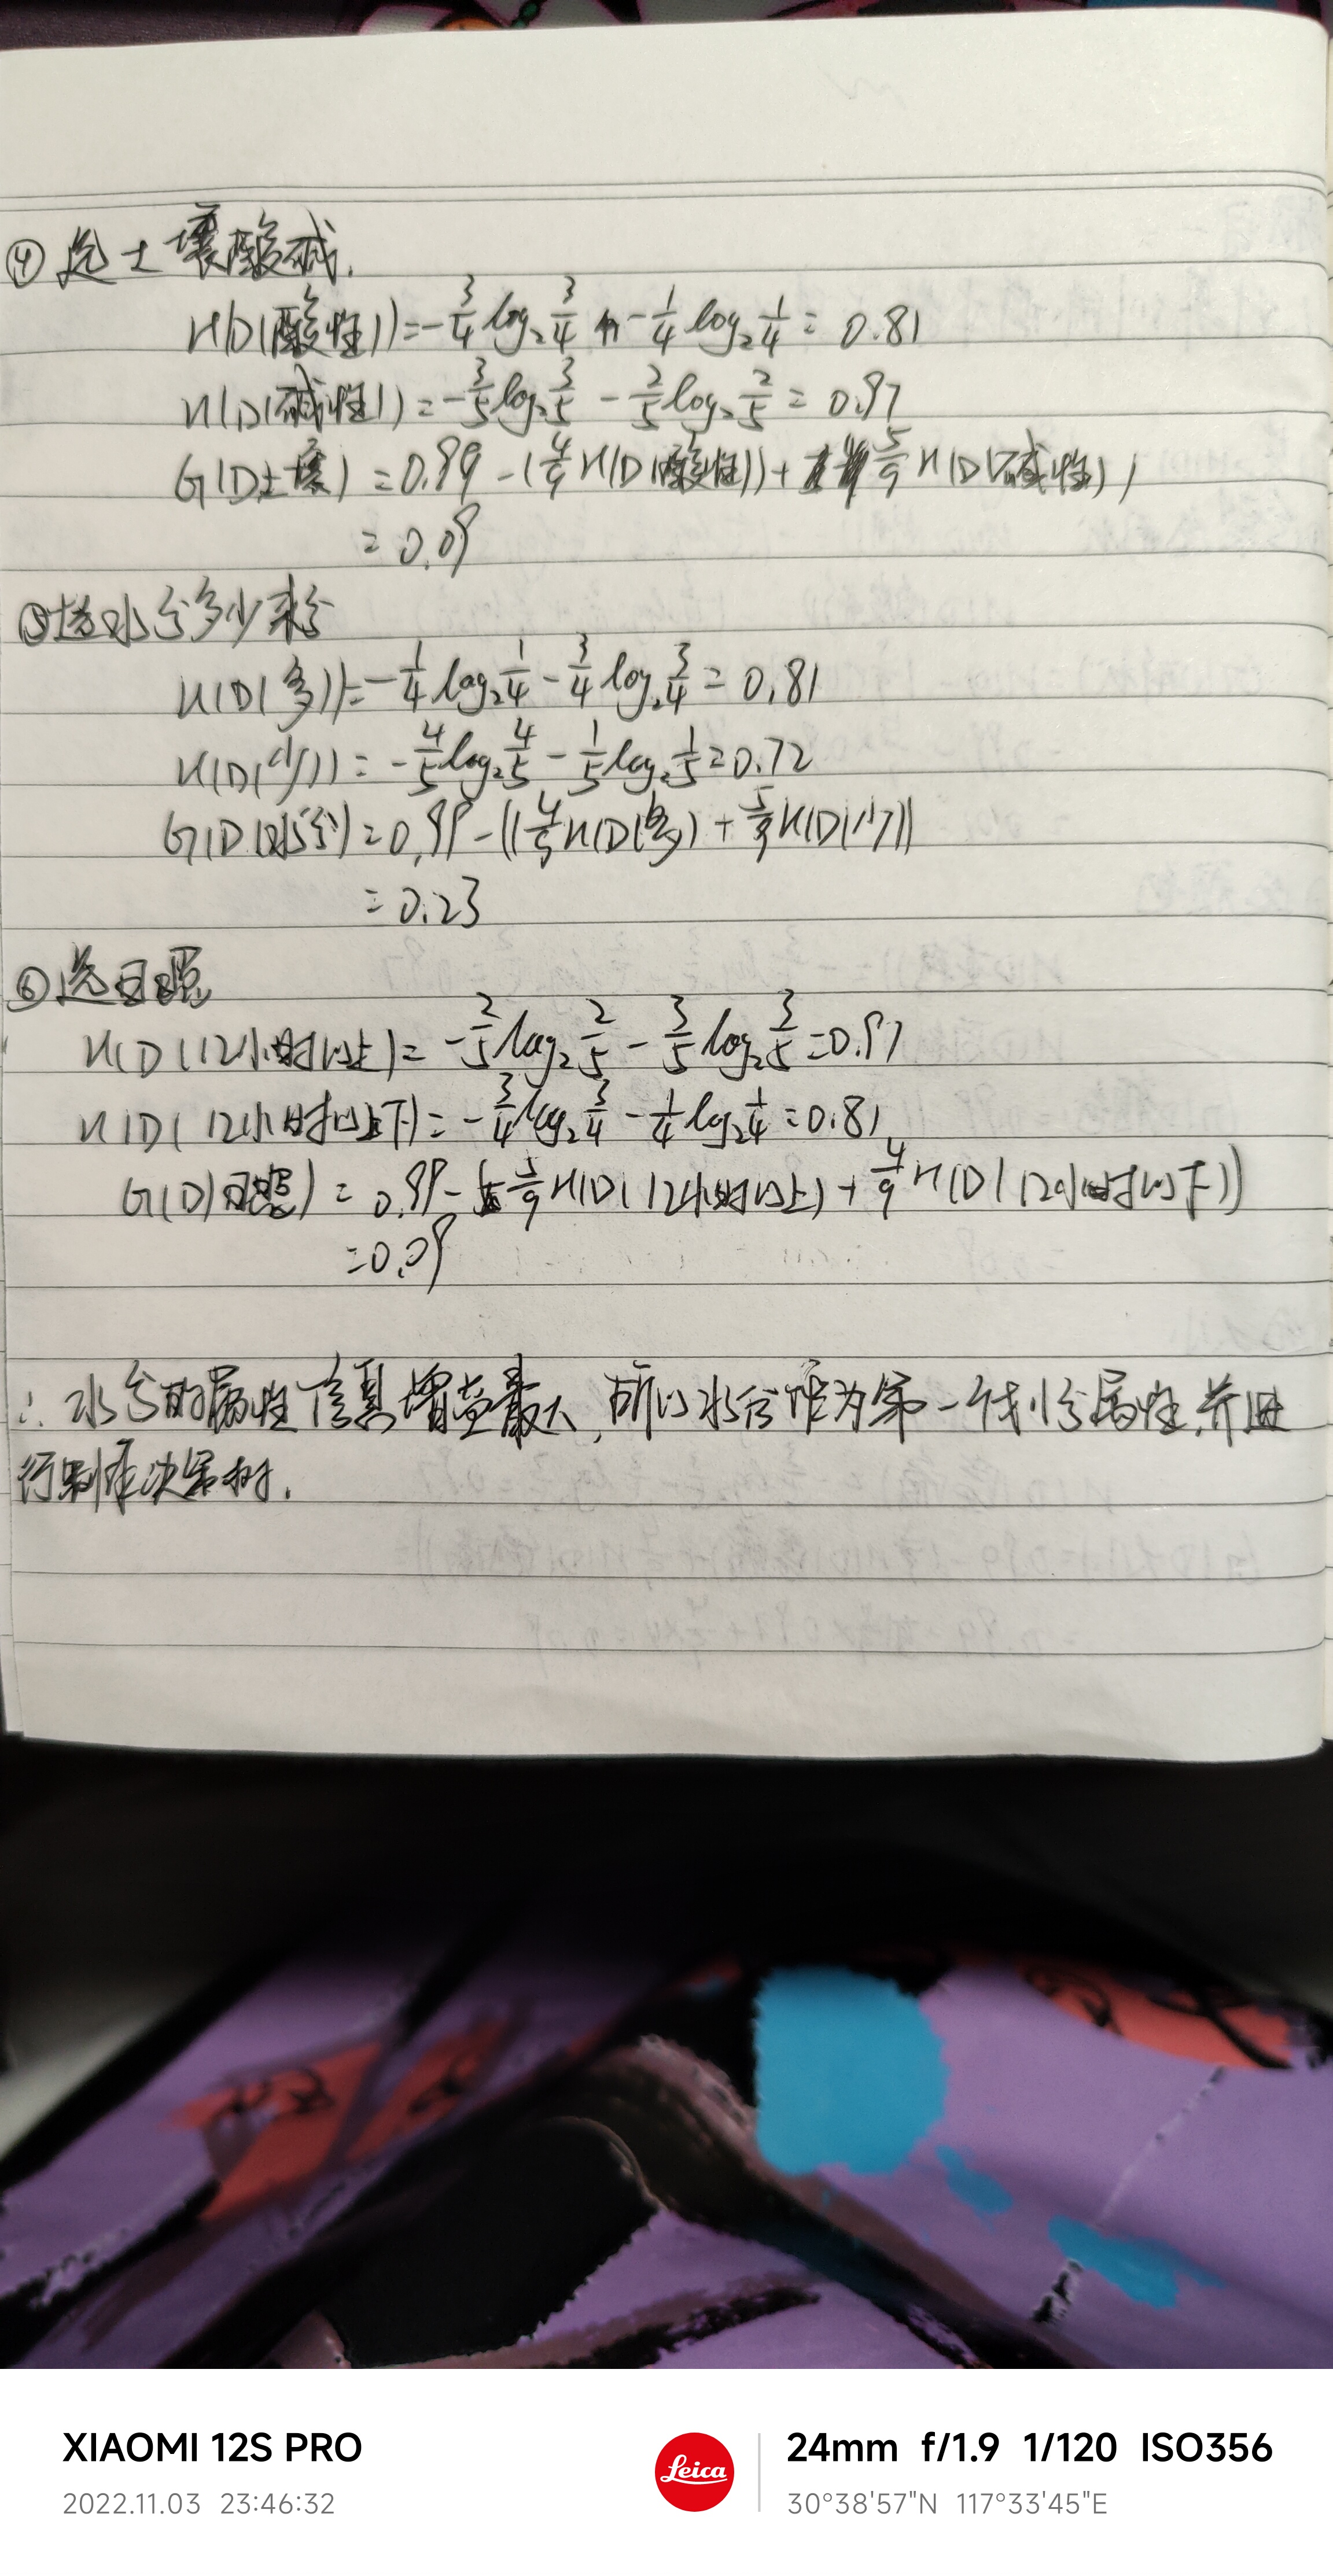 ④ 选土壤酸碱.
H(D(酸性))=-3/4 log₂ 3/4 - 1/4 log₂ 1/4 = 0.81
H(D(碱性))=-3/5 log₂ 3/5 - 2/5 log₂ 2/5 = 0.97
G(D土壤) = 0.99 -(4/9 H(D(酸性))+ 5/9 H(D(碱性))
= 0.09
⑤选水分多少来分
H(D(多))=-1/4 log₂ 1/4 - 3/4 log₂ 3/4 = 0.81
H(D(少)) = -4/5 log₂ 4/5 - 1/5 log₂ 1/5 = 0.72
G(D(水分)=0.99-((4/9 H(D(多) + 5/9 H(D(少))
= 0.23
⑥选日照
H(D(12小时以上)= -2/5 log₂ 2/5 - 3/5 log₂ 3/5 =0.97
H(D( 12小时以下)= -3/4 log₂ 3/4 - 1/4 log₂ 1/4 =0.81
G(D)日照) = 0.99- 5/9 H(D(12小时以上) + 4/9 H(D(12小时以下))
=0.09
∴ 水分的属性信息增益最大,所以水分作为第一个划分属性,并进
行制作决策树.
XIAOMI 12S PRO
2022.11.03 23:46:32
Leica
24mm f/1.9 1/120 ISO356
30°38'57"N 117°33'45"E